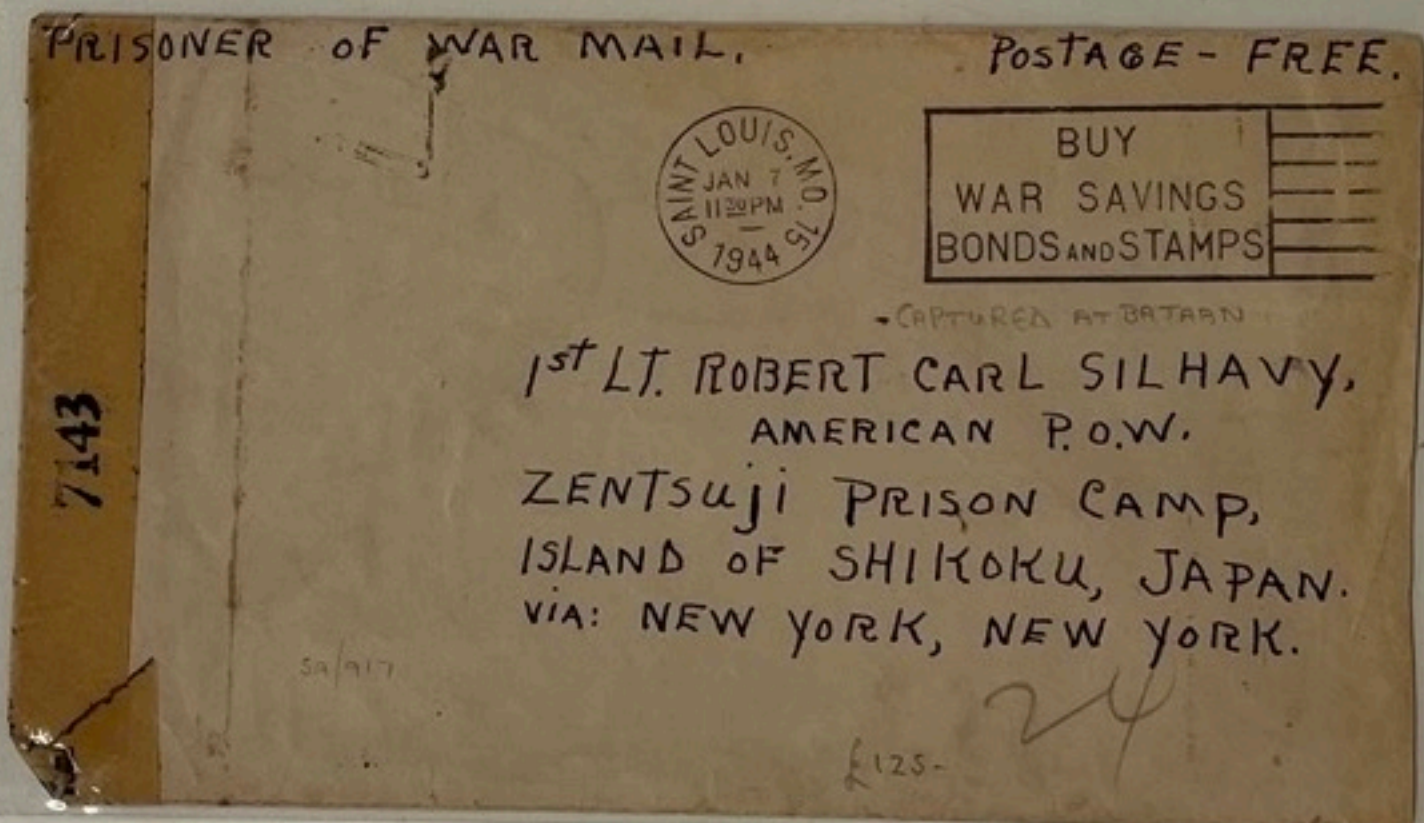 PRISONER OF WAR MAIL. POSTAGE - FREE.
SAINT LOUIS, MO. 15
JAN 7
11 30 PM
1944
BUY
WAR SAVINGS
BONDS AND STAMPS
- CAPTURED AT BATAAN
1st LT. ROBERT CARL SILHAVY,
AMERICAN P.O.W.
ZENTSUJI PRISON CAMP,
ISLAND OF SHIKOKU, JAPAN.
VIA: NEW YORK, NEW YORK.
7143
sa/917
24
£125-